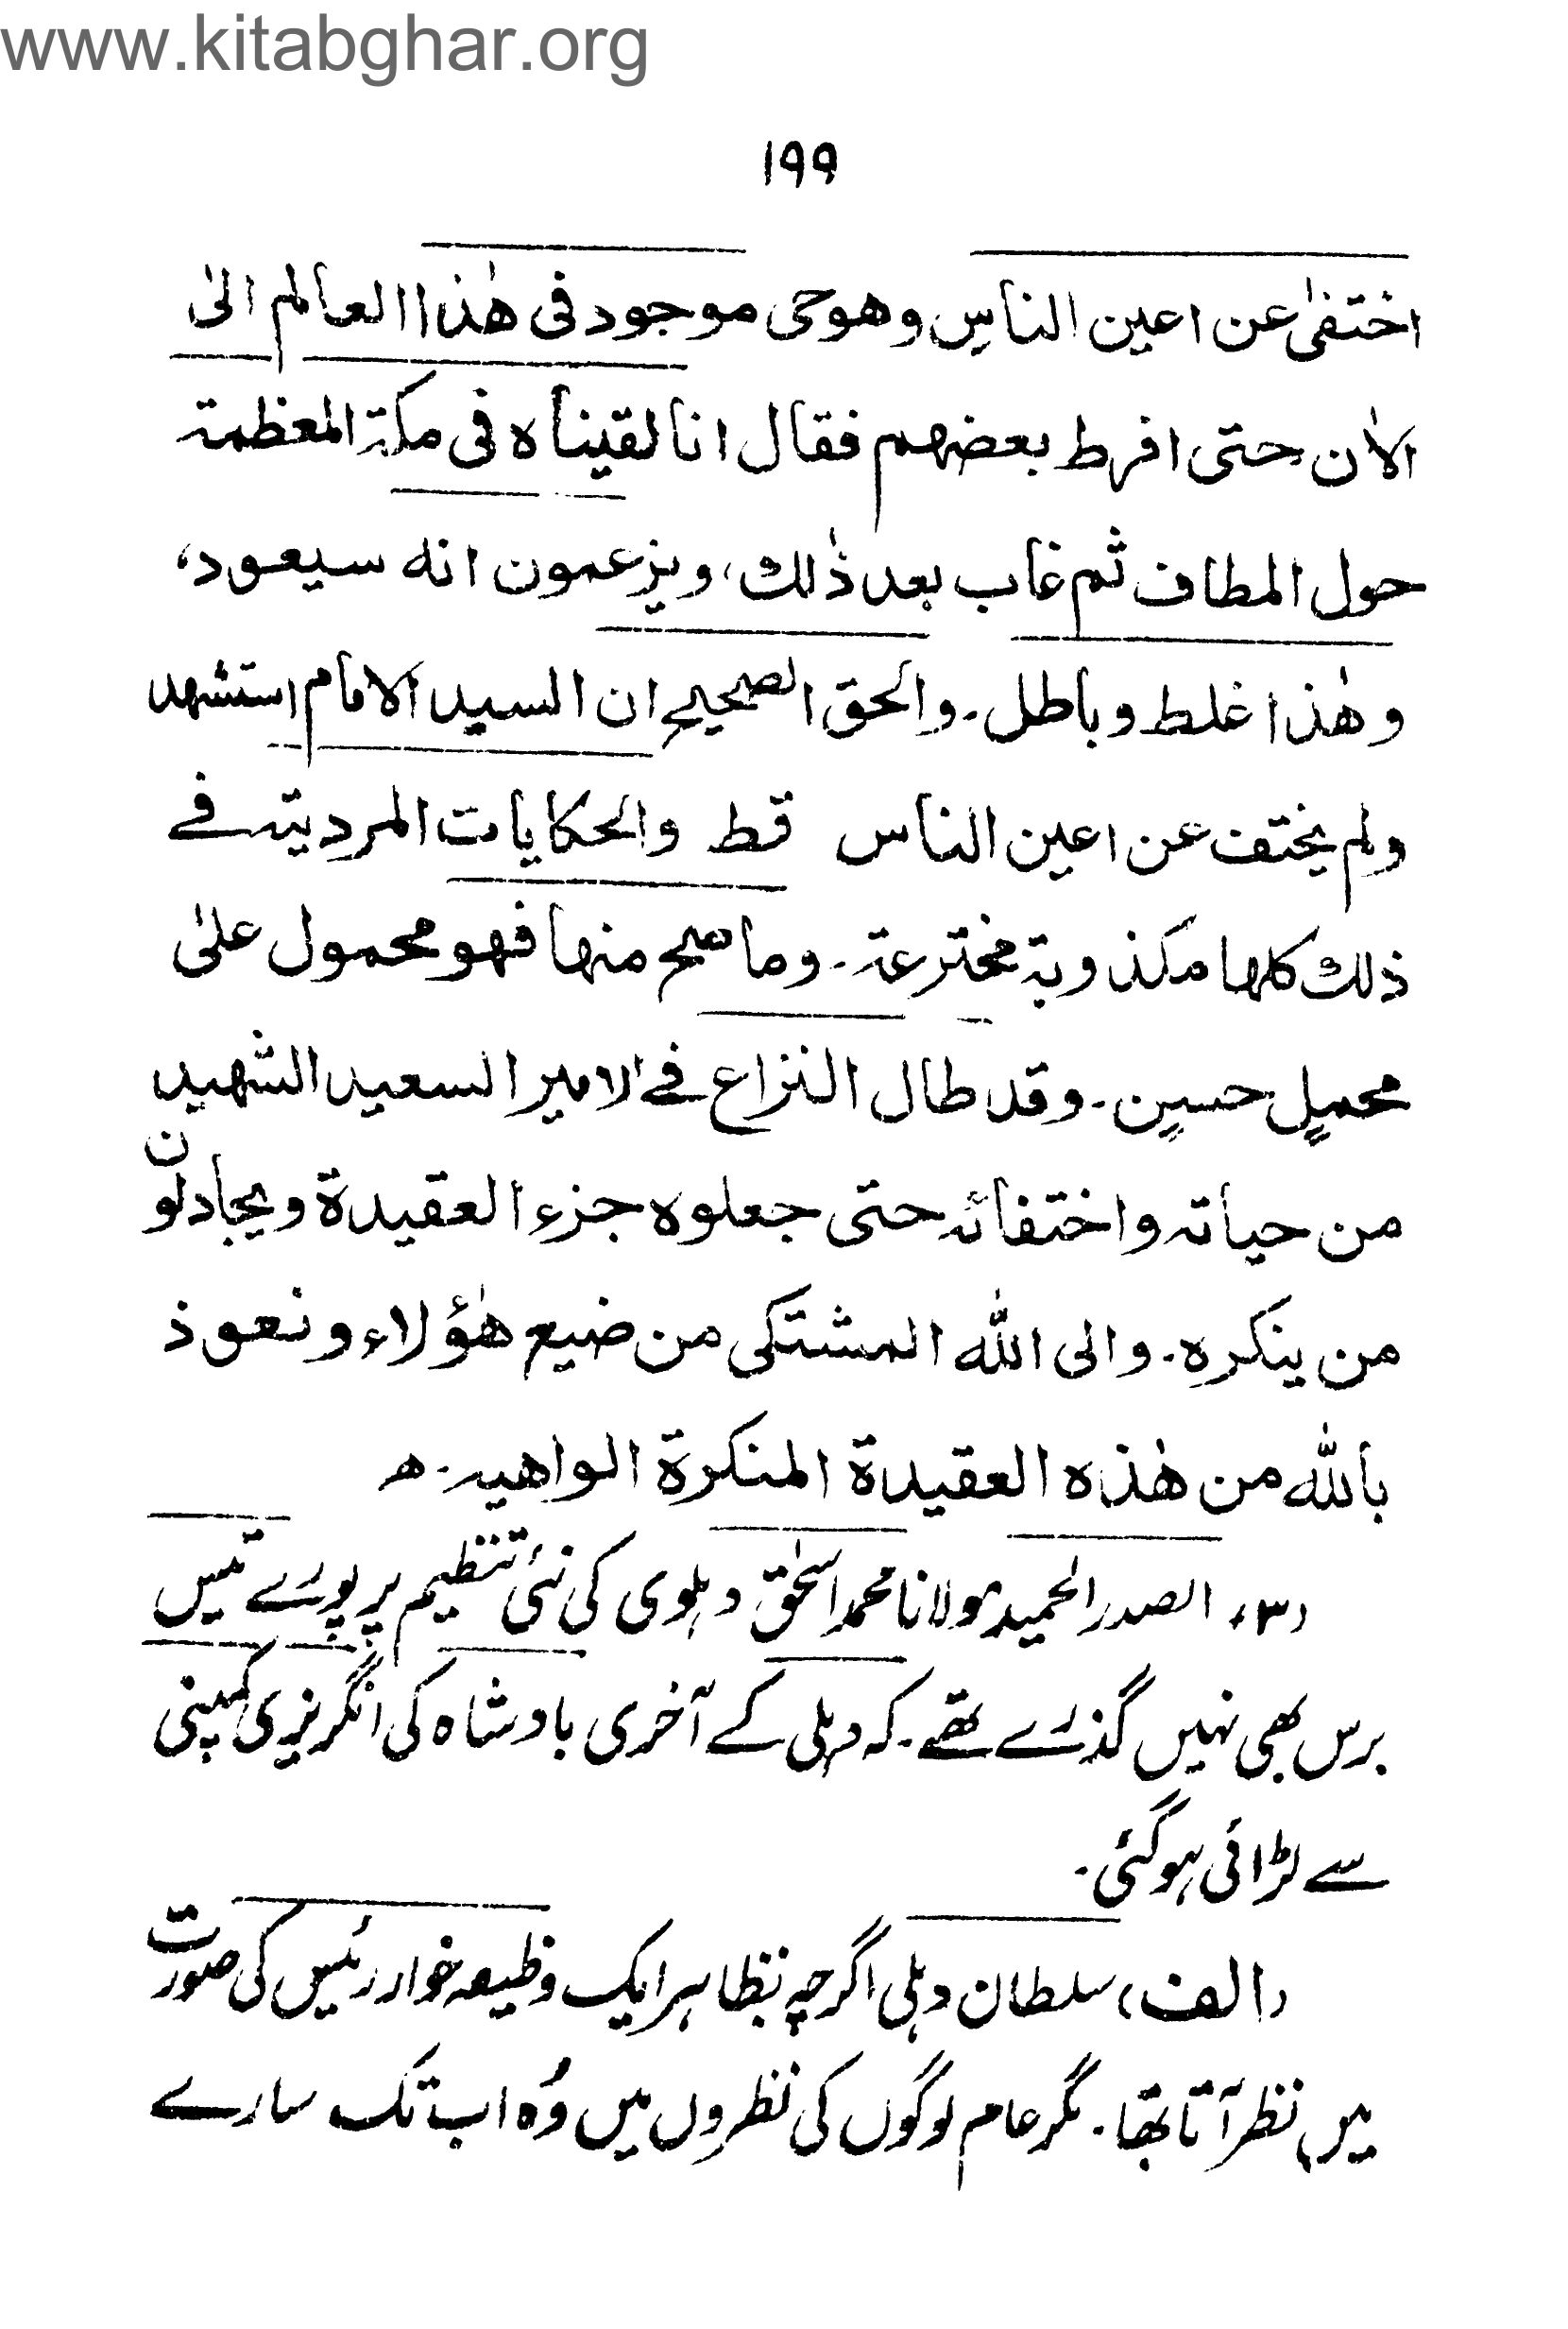 www.kitabghar.org
۱۹۹
اختفیٰ عن اعین الناس وهو حی موجود فی هٰذا العالم الیٰ
الاٰن حتی افرط بعضهم فقال انا لقیناه فی مکۃ المعظمۃ
حول المطاف ثم غاب بعد ذٰلك، ویزعمون انه سیعود،
وهٰذا غلط وباطل۔ والحق الصحیح ان السید الامام استشهد
ولم یختف عن اعین الناس قط والحکایات المردیۃ فے
ذلك کلها مکذوبۃ مخترعۃ۔ وما صح منها فهو محمول علیٰ
محملٍ حسینٍ۔ وقد طال النزاع فے الامیر السعید الشهید
من حیاتہ واختفائہ حتی جعلوه جزء العقیدة ویجادلون
من ینکره۔ والی اللّٰه المشتکی من ضیع هٰؤلاء ونعوذ
باللّٰه من هٰذه العقیدة المنکرة الواهیہ۔ ھ
(۳) الصدر الحمید مولانا محمد اسحٰق دہلوی کی نئی تنظیم پر پورے تیس
برس بھی نہیں گذرے تھے۔ کہ دہلی کے آخری بادشاہ کی انگریزی کمپنی
سے لڑائی ہوگئی۔
(الف) سلطان دہلی اگرچہ بظاہر ایک وظیعہ خوار رئیس کی صورت
میں نظر آتا تھا۔ مگر عام لوگوں کی نظروں میں وُہ اب تک سارے